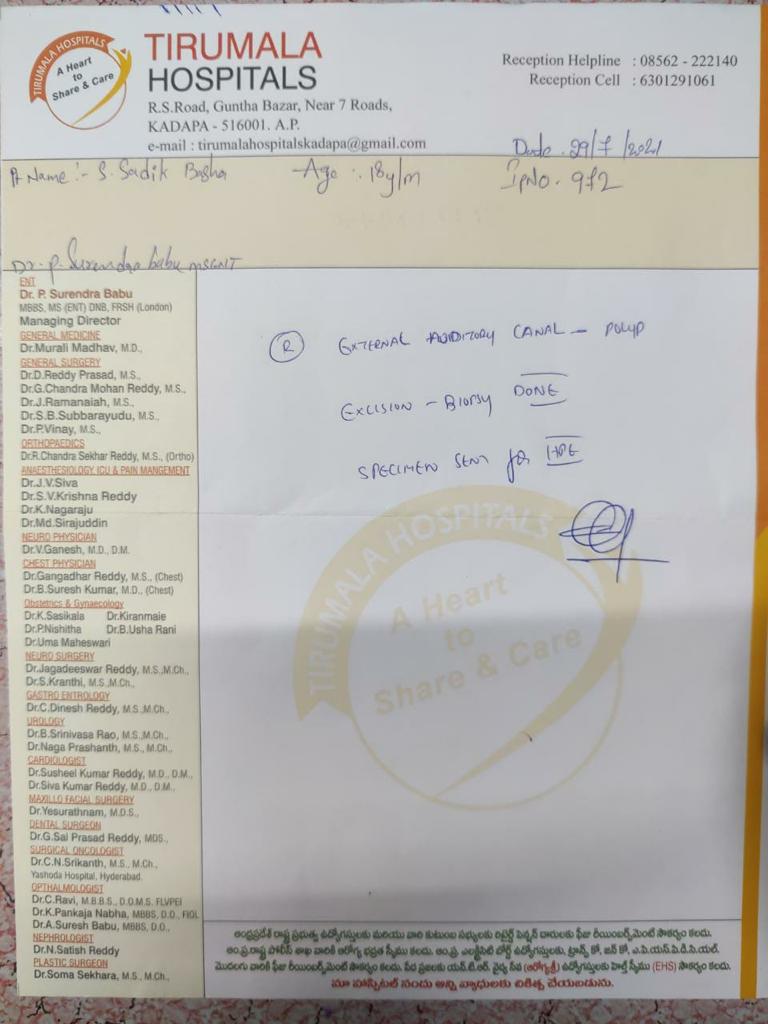 TIRUMALA HOSPITALS
A Heart
to
Share & Care
TIRUMALA
HOSPITALS
R.S.Road, Guntha Bazar, Near 7 Roads,
KADAPA - 516001. A.P.
e-mail : tirumalahospitalskadapa@gmail.com
Reception Helpline : 08562 - 222140
Reception Cell : 6301291061
Date. 29/7/2021
Pt Name :- S. Sadik Basha Age :. 18y/m IpNo. 972
Dr. P. Surendra babu MSENT
ENT
Dr. P. Surendra Babu
MBBS, MS (ENT) DNB, FRSH (London)
Managing Director
GENERAL MEDICINE
Dr.Murali Madhav, M.D.,
GENERAL SURGERY
Dr.D.Reddy Prasad, M.S.,
Dr.G.Chandra Mohan Reddy, M.S.,
Dr.J.Ramanaiah, M.S.,
Dr.S.B.Subbarayudu, M.S.,
Dr.P.Vinay, M.S.,
ORTHOPAEDICS
Dr.R.Chandra Sekhar Reddy, M.S., (Ortho)
ANAESTHESIOLOGY, ICU & PAIN MANGEMENT
Dr.J.V.Siva
Dr.S.V.Krishna Reddy
Dr.K.Nagaraju
Dr.Md.Sirajuddin
NEURO PHYSICIAN
Dr.V.Ganesh, M.D., D.M.
CHEST PHYSICIAN
Dr.Gangadhar Reddy, M.S., (Chest)
Dr.B.Suresh Kumar, M.D., (Chest)
Obstetrics & Gynaecology
Dr.K.Sasikala Dr.Kiranmaie
Dr.P.Nishitha Dr.B.Usha Rani
Dr.Uma Maheswari
NEURO SURGERY
Dr.Jagadeeswar Reddy, M.S.,M.Ch.,
Dr.S.Kranthi, M.S.,M.Ch.,
GASTRO ENTROLOGY
Dr.C.Dinesh Reddy, M.S.,M.Ch.,
UROLOGY
Dr.B.Srinivasa Rao, M.S.,M.Ch.,
Dr.Naga Prashanth, M.S., M.Ch.,
CARDIOLOGIST
Dr.Susheel Kumar Reddy, M.D., D.M.,
Dr.Siva Kumar Reddy, M.D., D.M.,
MAXILLO FACIAL SURGERY
Dr.Yesurathnam, M.D.S.,
DENTAL SURGEON
Dr.G.Sai Prasad Reddy, MDS.,
SURGICAL ONCOLOGIST
Dr.C.N.Srikanth, M.S., M.Ch.,
Yashoda Hospital, Hyderabad.
OPTHALMOLOGIST
Dr.C.Ravi, M.B.B.S., D.O.M.S. FLVPEI
Dr.K.Pankaja Nabha, MBBS, D.O., FIOL
Dr.A.Suresh Babu, MBBS, D.O.,
NEPHROLOGIST
Dr.N.Satish Reddy
PLASTIC SURGEON
Dr.Soma Sekhara, M.S., M.Ch.,
R EXTERNAL AUDITORY CANAL - POLYP
EXCISION - BIOPSY DONE
SPECIMEN SENT for HPE
TIRUMALA HOSPITALS
A Heart
to
Share & Care
ఆంధ్రప్రదేశ్ రాష్ట్ర ప్రభుత్వ ఉద్యోగస్తులకు మరియు వారి కుటుంబ సభ్యులకు రిటైర్డ్ పెన్షన్ దారులకు ఫీజు రీయింబర్స్‌మెంట్ సౌకర్యం కలదు.
ఆం.ప్ర.రాష్ట్ర పోలీస్ శాఖ వారికి ఆరోగ్య భద్రత స్కీము కలదు. ఆం.ప్ర. ఎలక్ట్రిసిటి బోర్డ్ ఉద్యోగస్తులకు, ట్రాన్స్ కో, జన్ కో, ఎ.పి.యస్.పి.డి.సి.యల్.
మొదలగు వారికి ఫీజు రీయింబర్స్‌మెంట్ సౌకర్యం కలదు. పేద ప్రజలకు యన్.టి.ఆర్. వైద్య సేవ (ఆరోగ్యశ్రీ) ఉద్యోగస్తులకు హెల్త్ స్కీము (EHS) సౌకర్యం కలదు.
మా హాస్పిటల్ నందు అన్ని వ్యాధులకు చికిత్స చేయబడును.